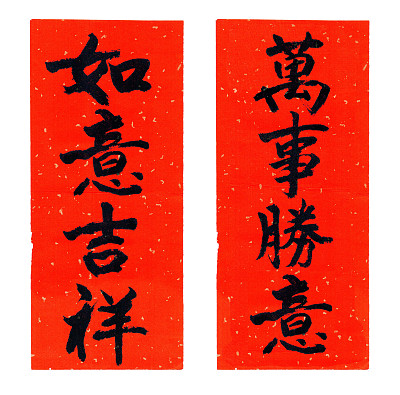 萬事勝意
如意吉祥